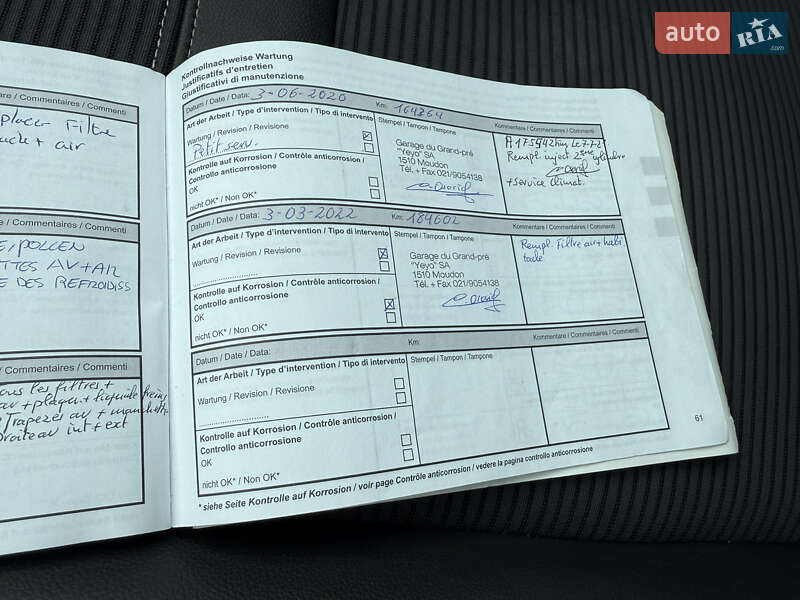 auto RIA .com
placer Filtre
+ air
re / Commentaires / Commenti
E/POLLEN
TTES AV+AR
E DES REFROIDISS
/ Commentaires / Commenti
ous les filtres +
av + plaqu. + liquide freins
Trapezes av +
Droite av int + ext
Kontrollnachweise Wartung
Justificatifs d'entretien
Giustificativi di manutenzione
Datum / Date / Data: 3-06-2020 Km: 164264
Art der Arbeit / Type d'intervention / Tipo di intervento
Wartung / Revision / Revisione
Petit serv.
Kontrolle auf Korrosion / Contrôle anticorrosion /
Controllo anticorrosione
OK
nicht OK* / Non OK*
Stempel / Tampon / Tampone
Garage du Grand-pré
"Yeyo" SA
1510 Moudon
Tél. + Fax 021/9054138
Kommentare / Commentaires / Commenti
Rempl. inject 2ème cylindre
+ service climat.
Datum / Date / Data: 3-03-2022 Km: 184602
Art der Arbeit / Type d'intervention / Tipo di intervento
Wartung / Revision / Revisione
Kontrolle auf Korrosion / Contrôle anticorrosion /
Controllo anticorrosione
OK
nicht OK* / Non OK*
Stempel / Tampon / Tampone
Garage du Grand-pré
"Yeyo" SA
1510 Moudon
Tél. + Fax 021/9054138
Kommentare / Commentaires / Commenti
Rempl. Filtre av + habi
tacle
Datum / Date / Data: Km:
Art der Arbeit / Type d'intervention / Tipo di intervento
Wartung / Revision / Revisione
Kontrolle auf Korrosion / Contrôle anticorrosion /
Controllo anticorrosione
OK
nicht OK* / Non OK*
Stempel / Tampon / Tampone
Kommentare / Commentaires / Commenti
* siehe Seite Kontrolle auf Korrosion / voir page Contrôle anticorrosion / vedere la pagina controllo anticorrosione
61